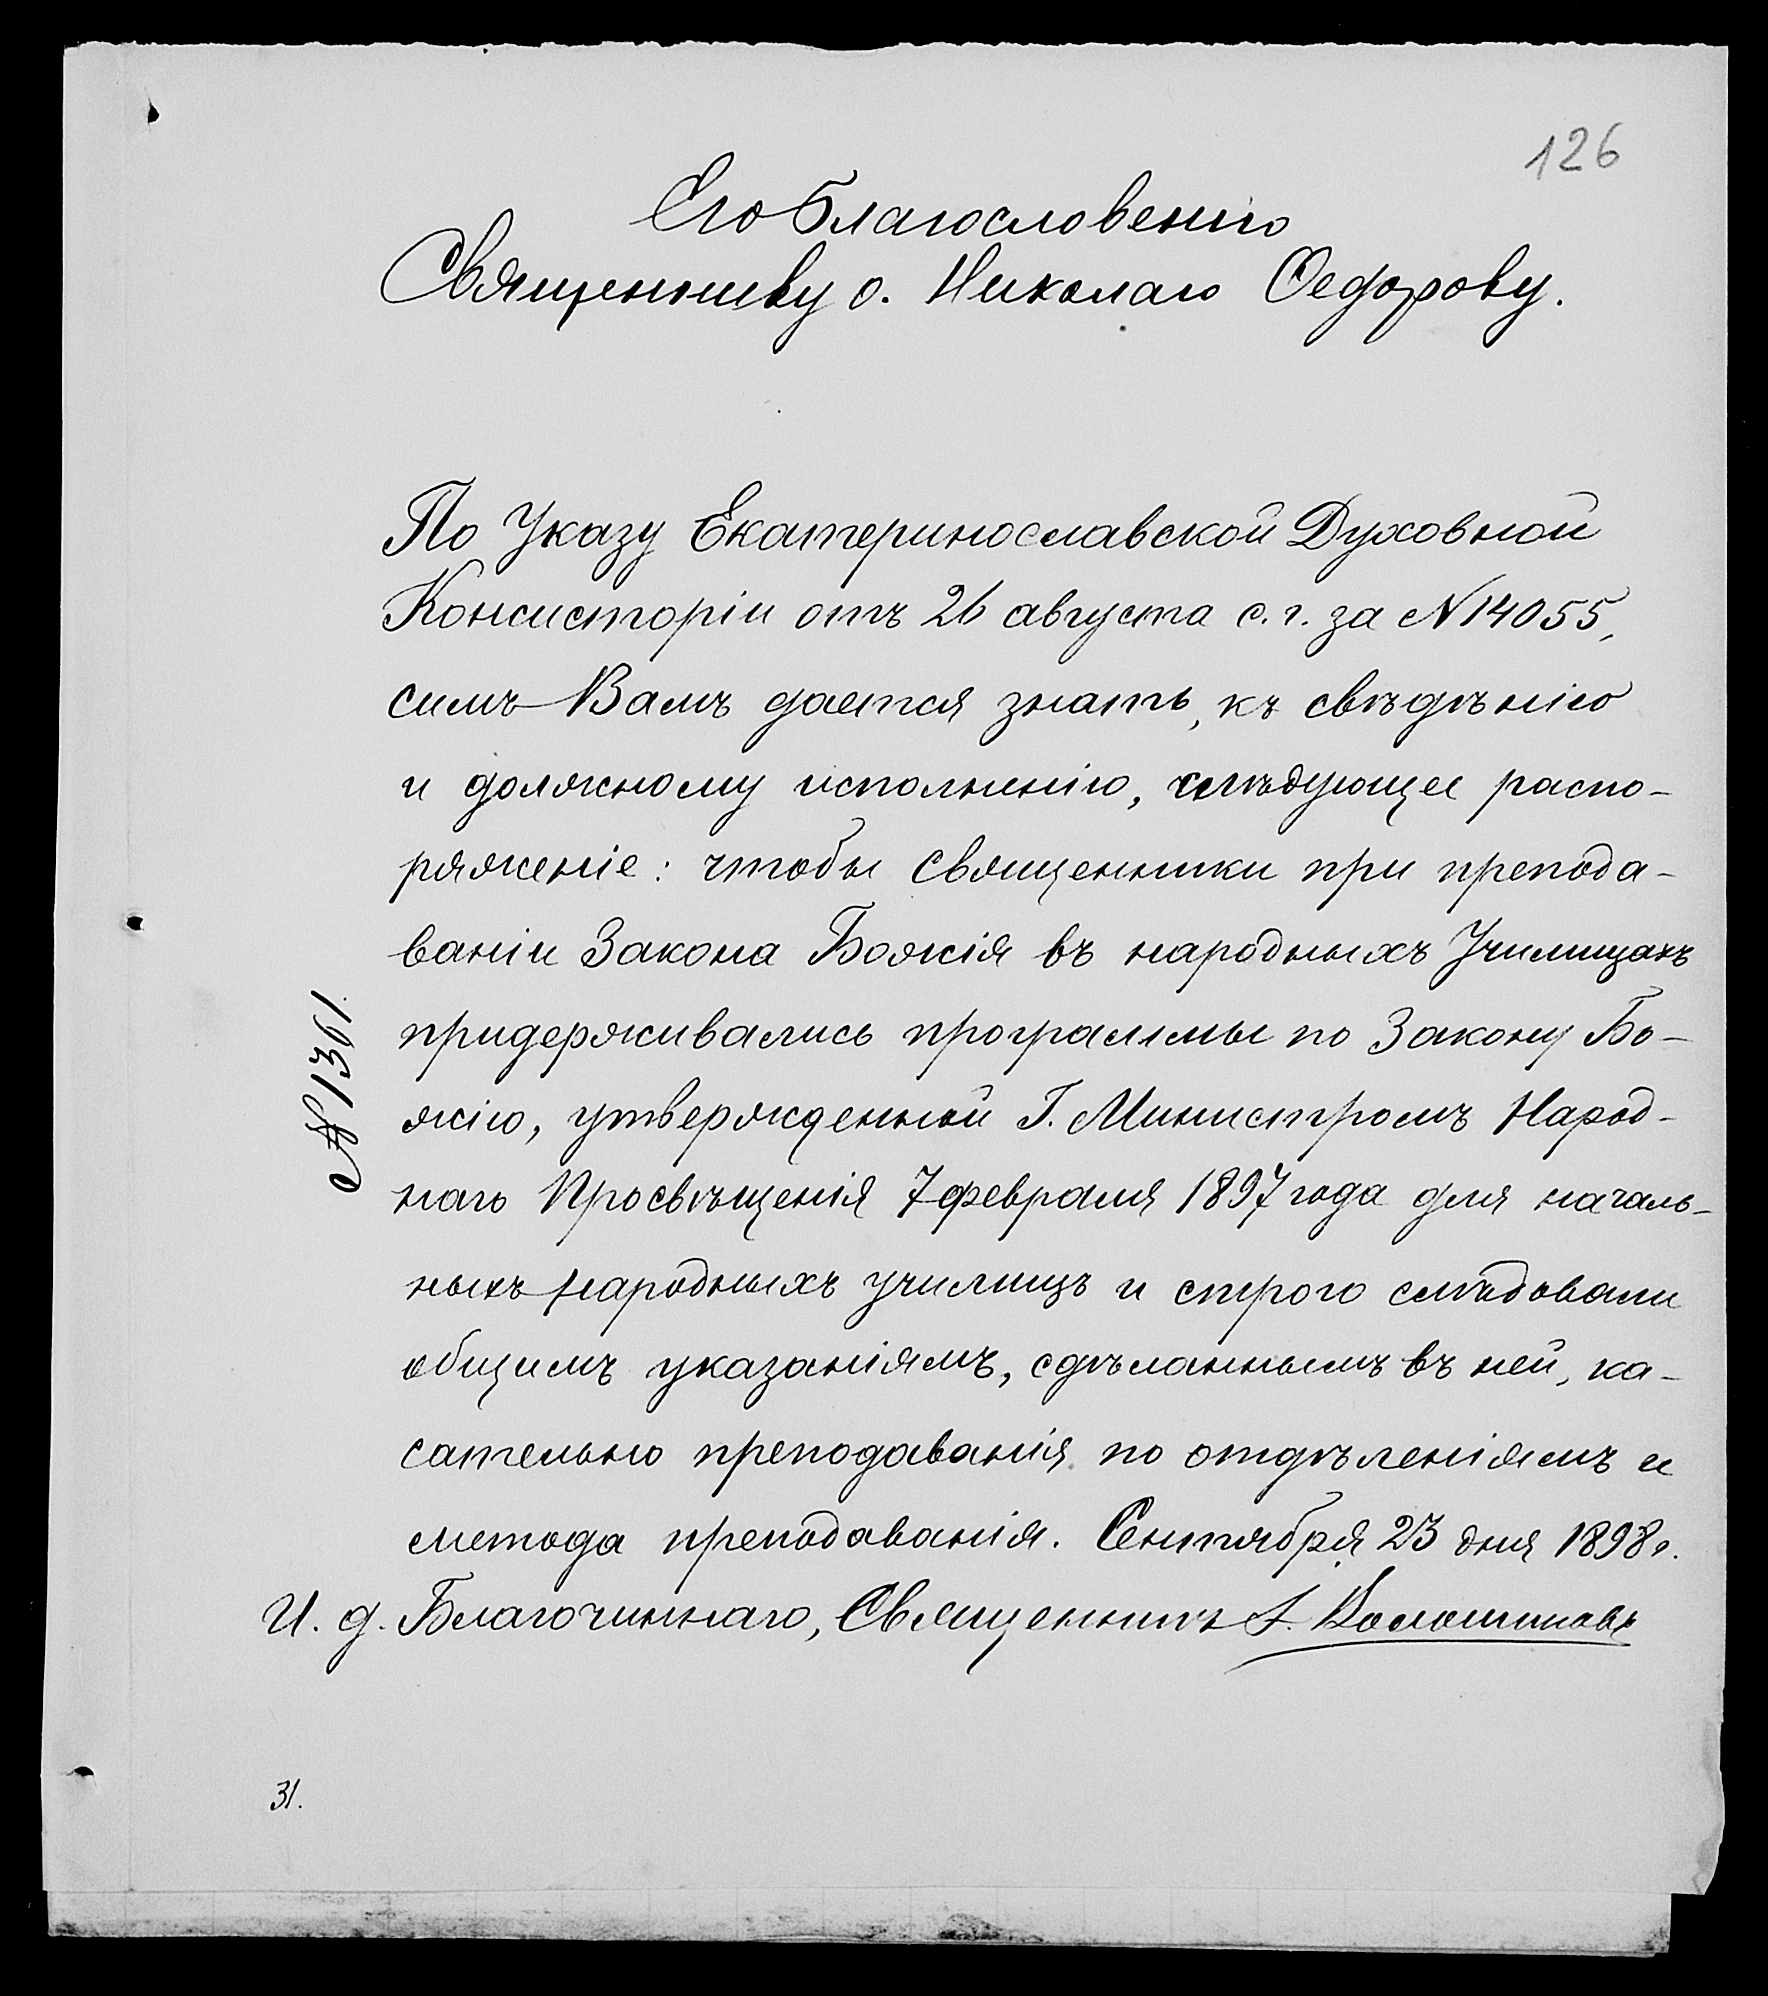 126
Его Благословенію
Священнику о. Николаю Ѳедорову.
По Указу Екатеринославской Духовной
Консисторіи отъ 26 августа с. г. за № 14055,
симъ Вамъ дается знать, къ свѣдѣнію
и должному исполненію, слѣдующее распо-
ряженіе: чтобы священники при препода-
ваніи Закона Божія въ народныхъ Училищахъ
придерживались программы по Закону Бо-
жію, утвержденной Г. Министромъ Народ-
наго Просвѣщенія 7 февраля 1897 года для началь-
ныхъ народныхъ училищъ и строго слѣдовали
общимъ указаніямъ, сдѣланнымъ въ ней, ка-
сательно преподаванія по отдѣленіямъ и
метода преподаванія. Сентября 23 дня 1898 г.
И. д. Благочиннаго, Священникъ А. Волошиновъ
№ 1361.
31.